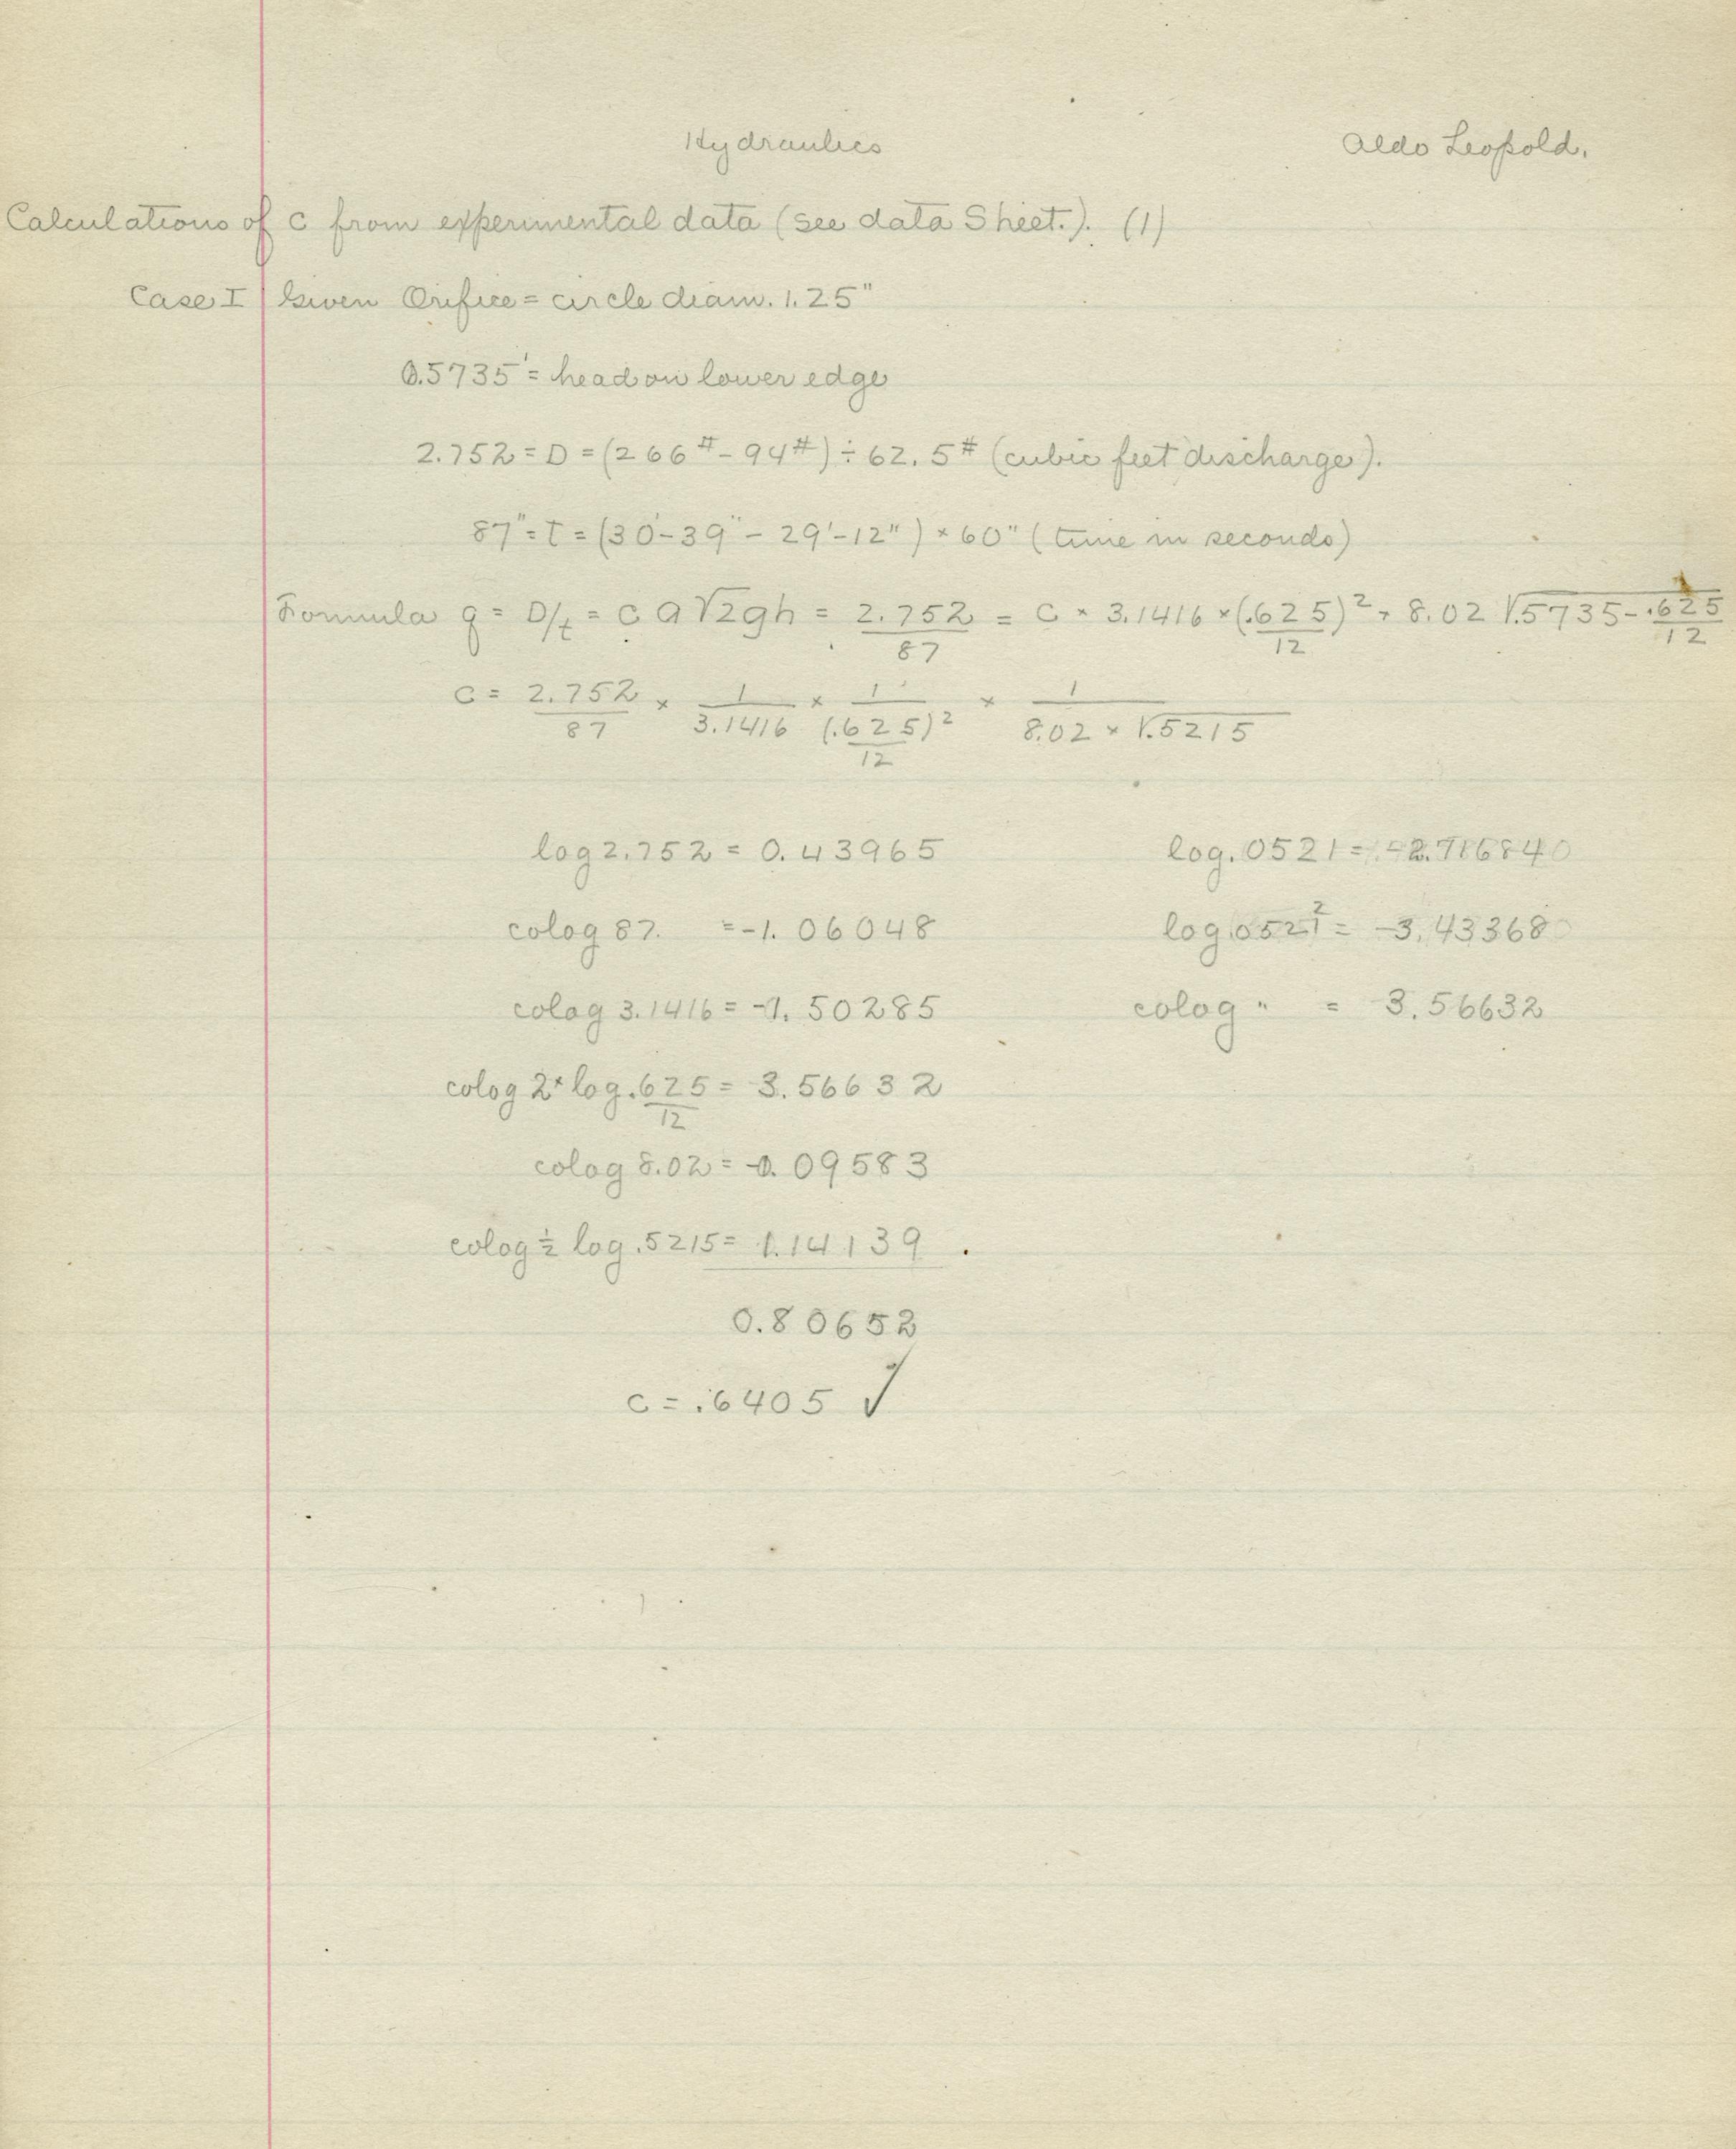 Hydraulics
Aldo Leopold.
Calculations of c from experimental data (see data Sheet.). (1)
Case I Given Orifice = circle diam. 1.25"
0.5735' = head on lower edge
2.752 = D = (266# - 94#) ÷ 62.5# (cubic feet discharge).
87" = T = (30'-39" - 29'-12") × 60" (time in seconds)
Formula q = D/t = c a √2gh = 2.752/87 = c × 3.1416 × (.625/12)² × 8.02 √.5735 - .625/12
c = 2.752/87 × 1/3.1416 × 1/(.625/12)² × 1/8.02 × √.5215
log 2.752 = 0.43965
colog 87. = -1.06048
colog 3.1416 = -1.50285
colog 2 × log .625/12 = 3.56632
colog 8.02 = -0.09583
colog ½ log .5215 = 1.14139
0.80652
c = .6405 √
log .0521 = -2.716840
log .0521² = -3.433680
colog " = 3.56632